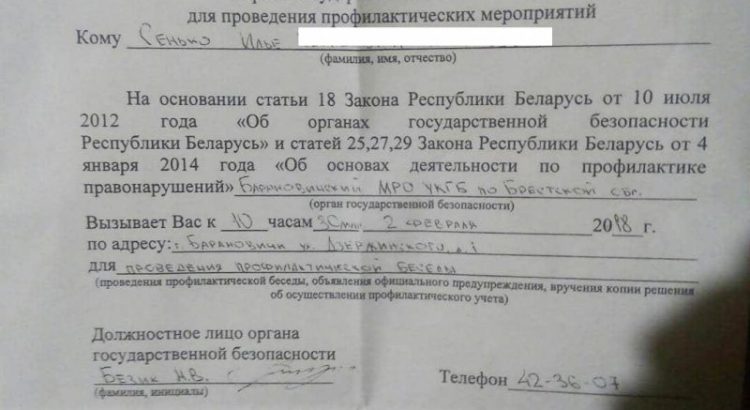 для проведения профилактических мероприятий
Кому Сенько Илье
(фамилия, имя, отчество)
На основании статьи 18 Закона Республики Беларусь от 10 июля
2012 года «Об органах государственной безопасности
Республики Беларусь» и статей 25,27,29 Закона Республики Беларусь от 4
января 2014 года «Об основах деятельности по профилактике
правонарушений» Барановичский МРО УКГБ по Брестской обл.
(орган государственной безопасности)
Вызывает Вас к 10 часам 30 мин 2 февраля 2018 г.
по адресу: г. Барановичи ул. Дзержинского, д. 1
для проведения профилактической беседы
(проведения профилактической беседы, объявления официального предупреждения, вручения копии решения
об осуществлении профилактического учета)
Должностное лицо органа
государственной безопасности
Безик Н.В.
(фамилия, инициалы)
Телефон 42-36-07